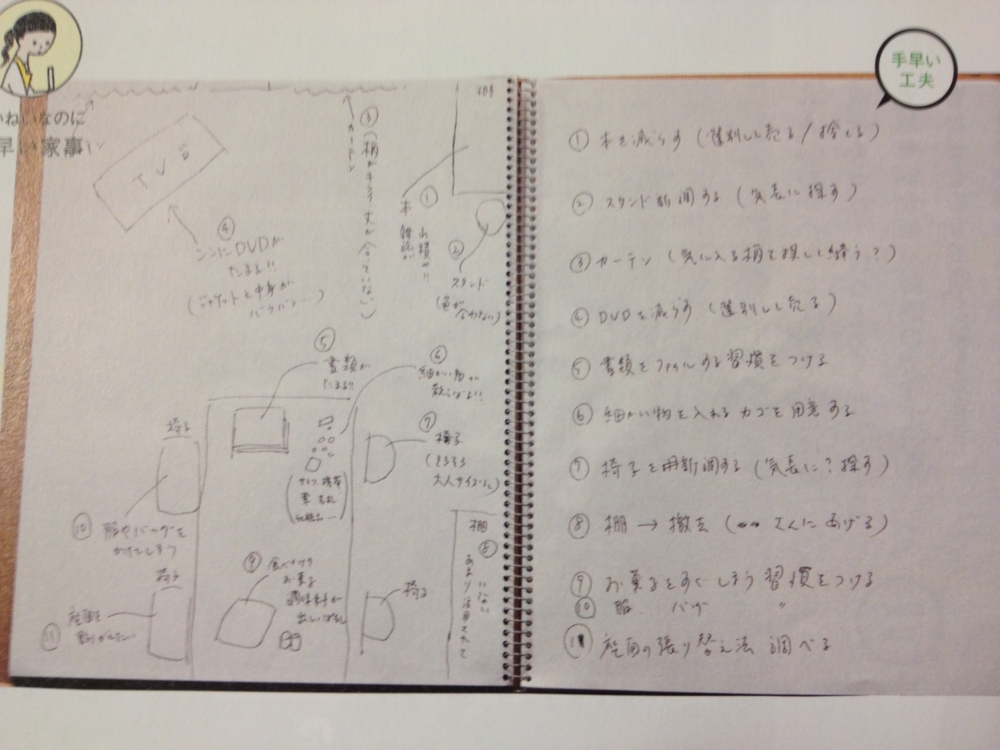 ていねいなのに
早い家事
手早い
工夫
TV台
④
ここにDVDが
たまる!!
(ジャケットと中身が
バラバラ…)
③
カーテン
(柄がキライ 丈が合っていない)
①
本
雑誌が
山積み!!
②
スタンド
(色が
合わない)
⑤
書類が
たまる!!
⑥
細かい物が
散らばる!!
⑦
椅子
(そろそろ
大人サイズに)
椅子
⑩ 服やバッグを
かけてしまう
椅子
⑪ 座面を
動かしたい
⑨ 食べかけの
お菓子
調味料が
出しっぱなし
椅子
棚
⑧
あまり活用されて
いない
① 本を減らす (選別して売る/捨てる)
② スタンド新調する (気長に探す)
③ カーテン (気に入る柄を探して縫う?)
④ DVDを減らす (選別して売る)
⑤ 書類をファイルする習慣をつける
⑥ 細かい物を入れるカゴを用意する
⑦ 椅子を新調する (気長に?探す)
⑧ 棚 → 撤去 (さんにあげる)
⑨ お菓子をすぐしまう習慣をつける
⑩ 服. バッグ 〃
⑪ 座面の張り替え法 調べる